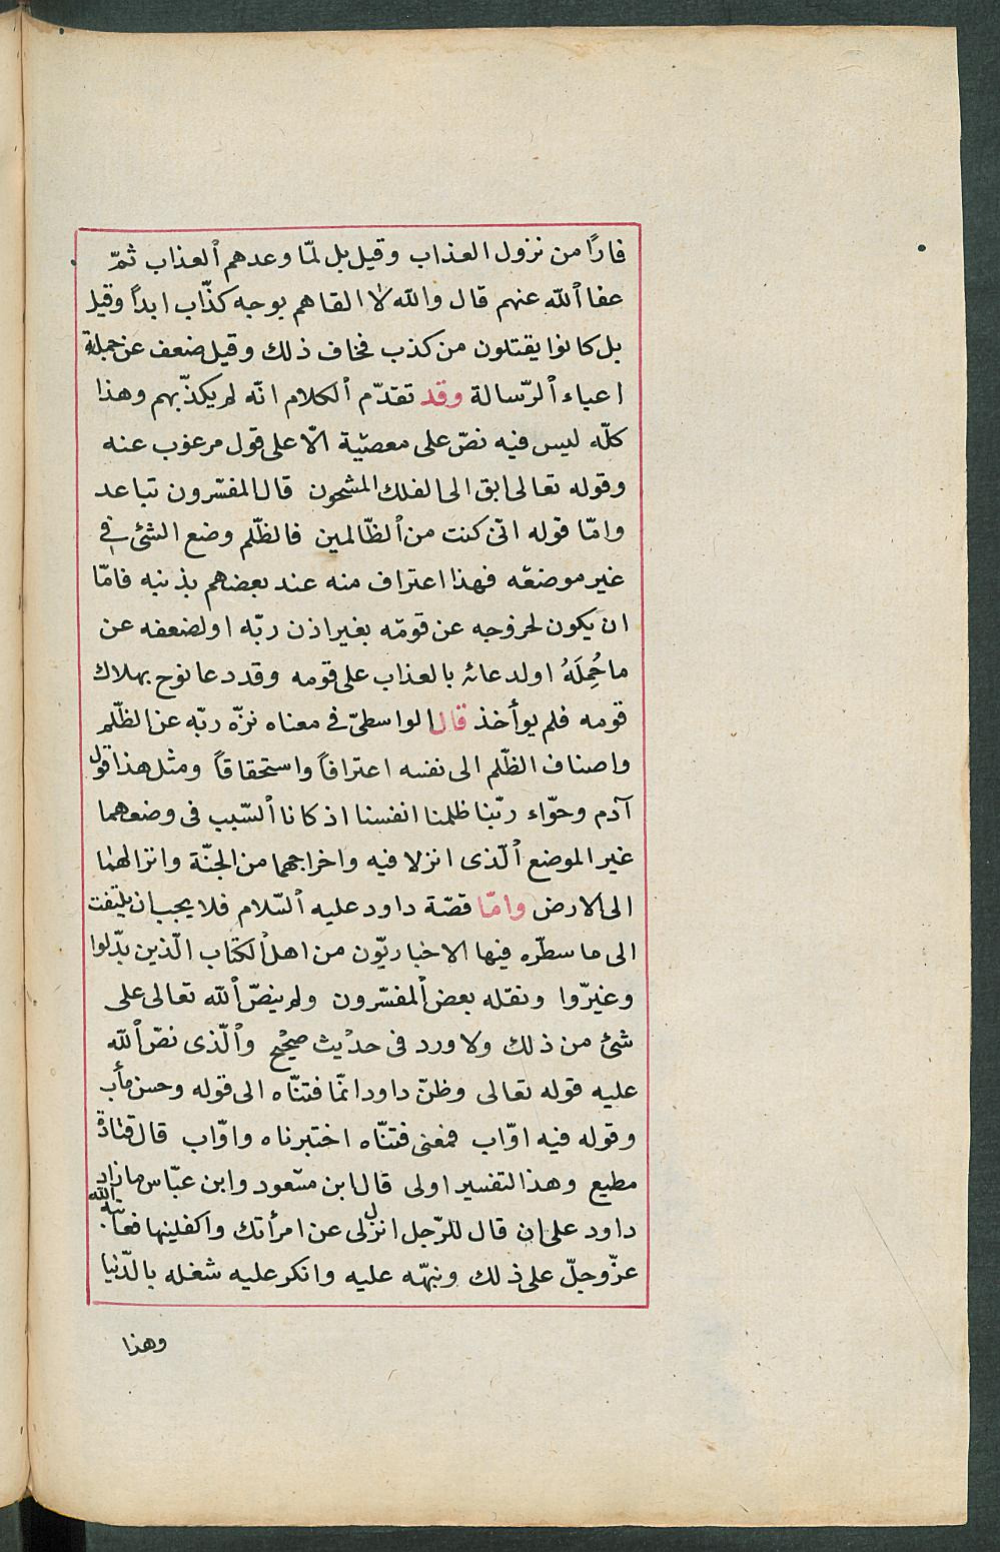 فارًّا من نزول العذاب وقيل بل لمّا وعدهم العذاب ثمّ
عفا الله عنهم قال والله لا القاهم بوجه كذّاب ابداً وقيل
بل كانوا يقتلون من كذب فخاف ذلك وقيل ضعف عن حمله
اعباء الرّسالة وقد تقدّم الكلام انّه لم يكذّبهم وهذا
كلّه ليس فيه نصّ على معصيّة الّا على قول مرغوب عنه
وقوله تعالى ابق الى الفلك المشحون قال المفسّرون تباعد
وامّا قوله انّى كنت من الظّالمين فالظّلم وضع الشئ فى
غير موضعه فهذا اعتراف منه عند بعضهم بذنبه فامّا
ان يكون لخروجه عن قومه بغير اذن ربّه او لضعفه عن
ما حُمِلَهُ او لدعائه بالعذاب على قومه وقد دعا نوح بهلاك
قومه فلم يوأخذ قال الواسطىّ فى معناه نزّه ربّه عن الظّلم
واصناف الظّلم الى نفسه اعترافاً واستحقاقاً ومثل هذا قول
آدم وحوّاء ربّنا ظلمنا انفسنا اذ كانا السّبب فى وضعهما
غير الموضع الّذى انزلا فيه واخراجهما من الجنّة وانزالهما
الى الارض وامّا قصّة داود عليه السّلام فلا يجب ان يلتفت
الى ما سطّره فيها الاخباريّون من اهل الكتاب الّذين بدّلوا
وغيّروا ونقله بعض المفسّرون ولم ينصّ الله تعالى على
شئ من ذلك ولا ورد فى حديث صحيح والّذى نصّ الله
عليه قوله تعالى وظنّ داود انّما فتنّاه الى قوله وحسن مأب
وقوله فيه اوّاب فمعنى فتنّاه اختبرناه واوّاب قال قتادة
مطيع وهذا التفسير اولى قال ابن مسعود وابن عبّاس ما زاد
داود على ان قال للرّجل انزل لى عن امرأتك واكفلينها فعاتبه الله
عزّ وجلّ على ذلك ونبّهه عليه وانكر عليه شغله بالدّنيا
وهذا